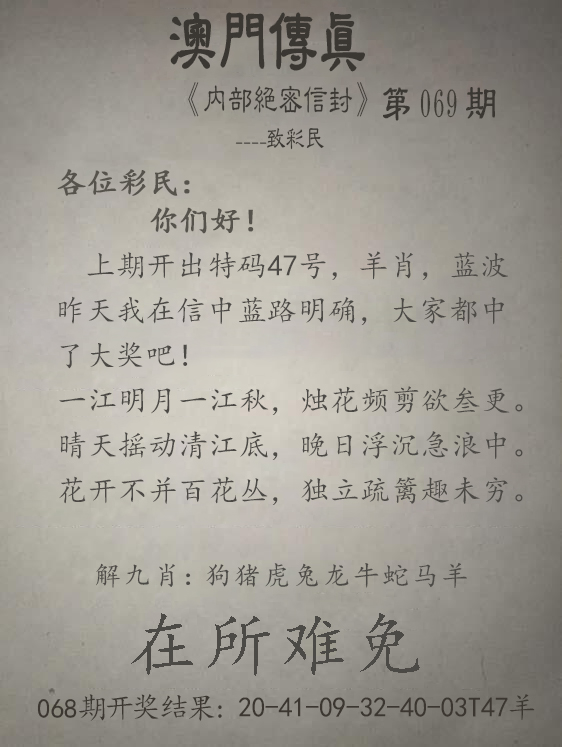 澳門傳眞
《内部絕密信封》第069期
----致彩民
各位彩民：
你们好！
上期开出特码47号，羊肖，蓝波
昨天我在信中蓝路明确，大家都中
了大奖吧！
一江明月一江秋，烛花频剪欲叁更。
晴天摇动清江底，晚日浮沉急浪中。
花开不并百花丛，独立疏篱趣未穷。
解九肖：狗猪虎兔龙牛蛇马羊
在所难免
068期开奖结果：20-41-09-32-40-03T47羊